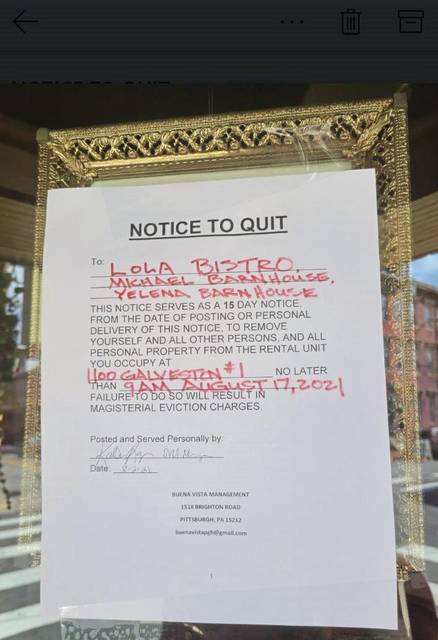 NOTICE TO QUIT
To: LOLA BISTRO,
MICHAEL BARNHOUSE,
YELENA BARNHOUSE
THIS NOTICE SERVES AS A 15 DAY NOTICE,
FROM THE DATE OF POSTING OR PERSONAL
DELIVERY OF THIS NOTICE, TO REMOVE
YOURSELF AND ALL OTHER PERSONS, AND ALL
PERSONAL PROPERTY FROM THE RENTAL UNIT
YOU OCCUPY AT
1100 GALVESTON #1 NO LATER
THAN 9AM AUGUST 17, 2021
FAILURE TO DO SO WILL RESULT IN
MAGISTERIAL EVICTION CHARGES.
Posted and Served Personally by:
Date: 8-2-21
BUENA VISTA MANAGEMENT
1518 BRIGHTON ROAD
PITTSBURGH, PA 15212
buenavistapgh@gmail.com
1